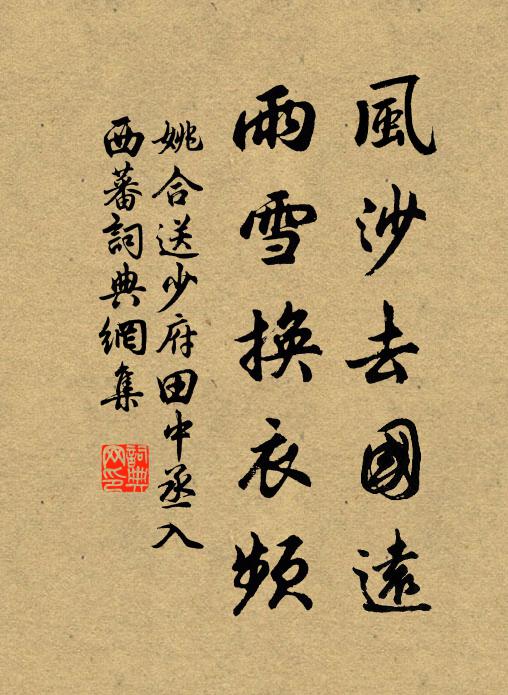 風沙去國遠
雨雪換衣頻
姚合送少府田中丞入
西蕃詞典網集
詞典
网印